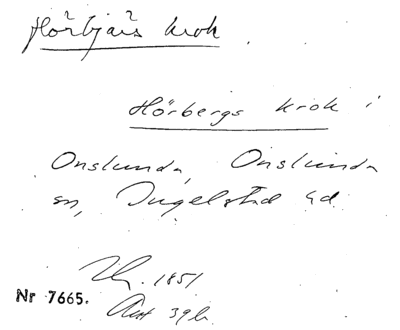 Hörbjärs krok
Hörbergs krok i
Onslunda, Onslunda
sn, Ingelstad hd
1851
Nr 7665.